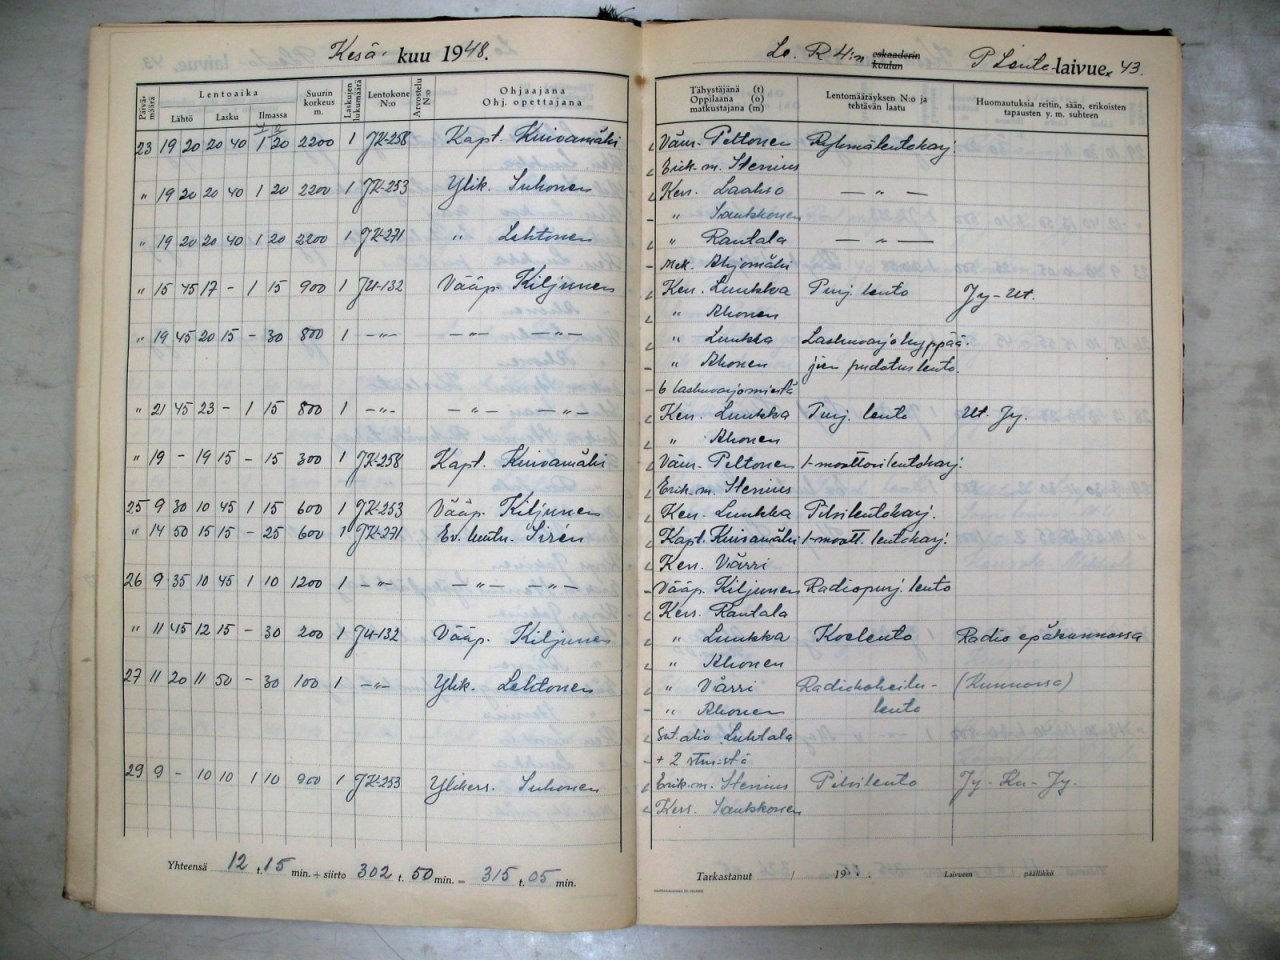 Kesä-kuu 1948.
Päivämäärä
Lentoaika
Lähtö Lasku Ilmassa
Suurin korkeus m.
Laskujen lukumäärä
Lentokone N:o
Arvostelu N:o
Ohjaajana
Ohj. opettajana
23 19 20 20 40 1 20 2200 1 JK-258 Kapt. Kuivamäki
" 19 20 20 40 1 20 2200 1 JK-253 Ylik. Suhonen
" 19 20 20 40 1 20 2200 1 JK-271 " Lehtonen
" 15 45 17 - 1 15 900 1 JU-132 Vääp. Kiljunen
" 19 45 20 15 - 30 800 1 -"- -"- -"-
" 21 45 23 - 1 15 800 1 -"- -"- -"-
" 19 - 19 15 - 15 300 1 JK-258 Kapt. Kuivamäki
25 9 30 10 45 1 15 600 1 JK-253 Vääp. Kiljunen
" 14 50 15 15 - 25 600 1 JK-271 Ev.luutn. Sirén
26 9 35 10 45 1 10 1200 1 -"- -"- -"-
" 11 45 12 15 - 30 200 1 JU-132 Vääp. Kiljunen
27 11 20 11 50 - 30 100 1 -"- Ylik. Lehtonen
29 9 - 10 10 1 10 900 1 JK-253 Ylikers. Suhonen
Yhteensä 12 t. 15 min. + siirto 302 t. 50 min. = 315 t. 05 min.
Le. R 4:n eskaaderin koulun P Lento-laivue. 43.
Tähystäjänä (t)
Oppilaana (o)
matkustajana (m)
Lentomääräyksen N:o ja
tehtävän laatu
Huomautuksia reitin, sään, erikoisten
tapausten y. m. suhteen
Vänr. Peltonen Ryhmälentoharj.
Erik.m. Stenius
Kers. Laakso - " -
" Saukkonen
" Rantala - " -
Mek. Ahjomäki
Kers. Luukka Purj. lento Jy-Ut.
" Ahonen
" Luukka Laskuvarjohyppää-
" Ahonen jien pudotuslento.
6 laskuvarjomiestä
Kers. Luukka Purj. lento Ut. Jy.
" Ahonen
Vänr. Peltonen 1-moottorilentoharj.
Erik.m. Stenius
Kers. Luukka Pilvilentoharj.
Kapt. Kuivamäki 1-moott. lentoharj.
Kers. Värri
Vääp. Kiljunen Radiopurj. lento
Kers. Rantala
" Luukka Koelento Radio epäkunnossa
" Ahonen
" Värri Radiokokeilu- (Kunnossa)
" Ahonen lento
Sot.alio. Luhtala
+ 2 stm:stä
Erik.m. Stenius Pilvilento Jy-Ku-Jy.
Kers. Saukkonen
Tarkastanut / 19 . Laivueen päällikkö